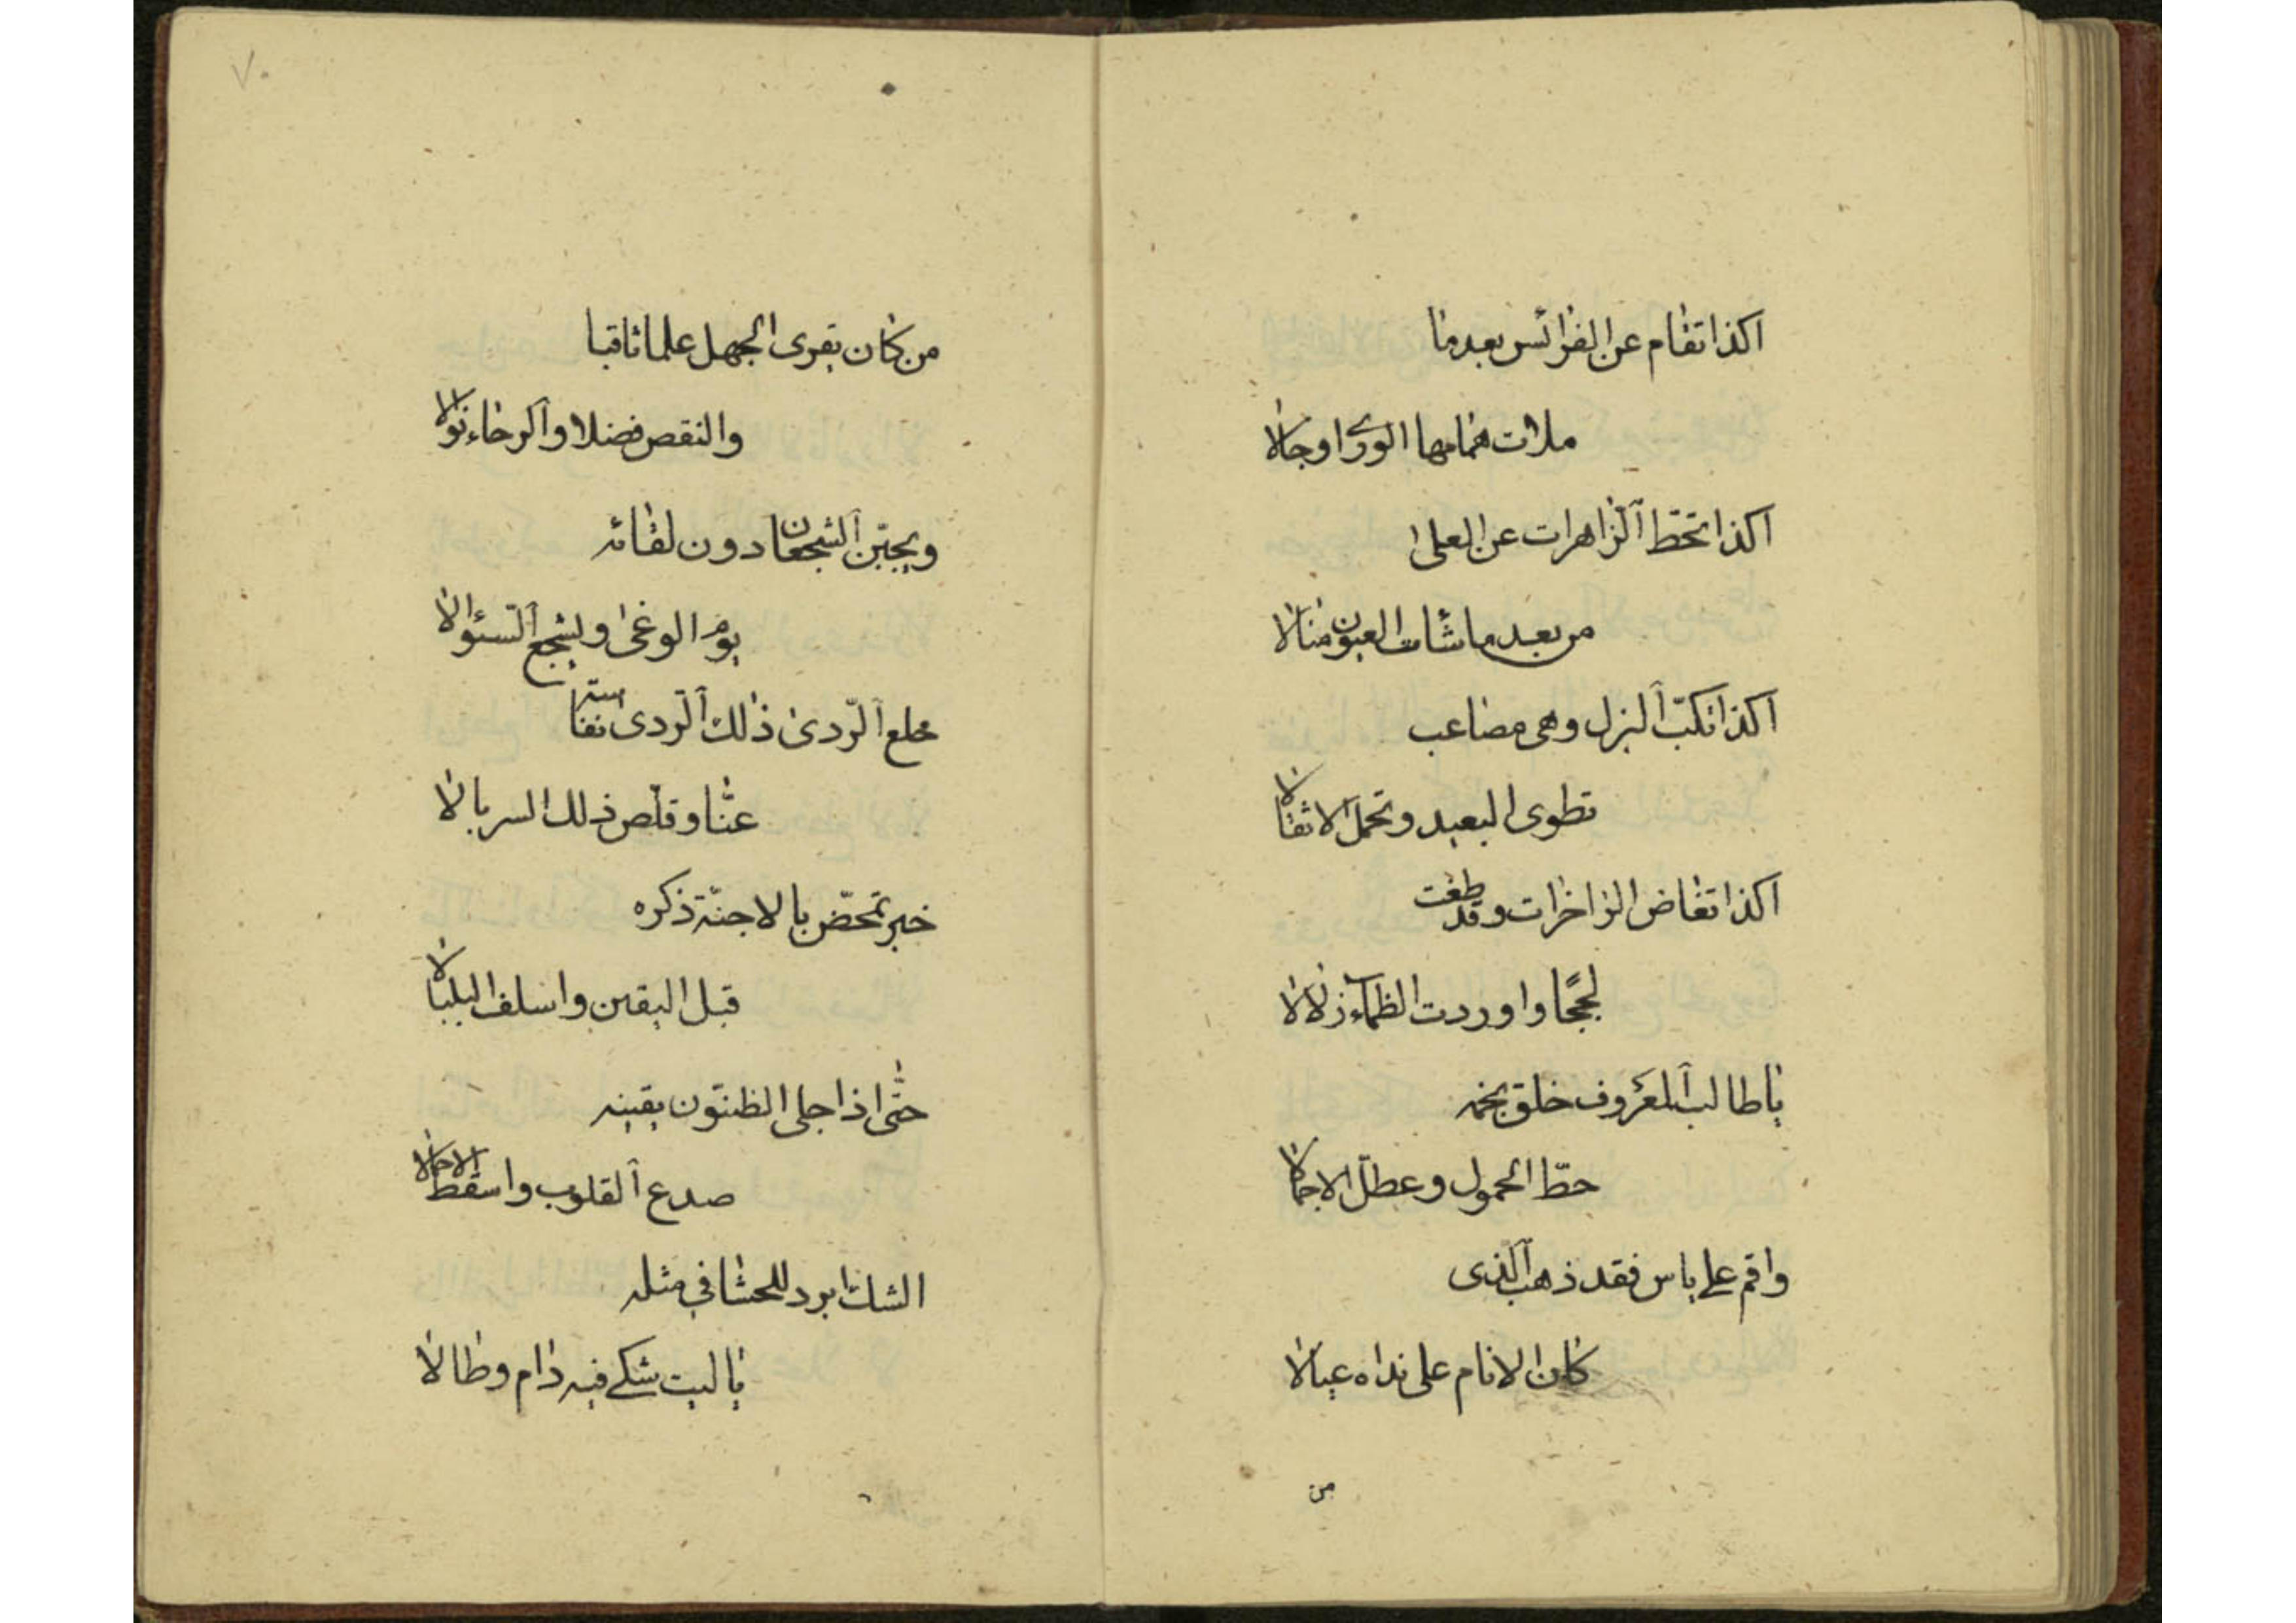 اكذا تقام عن الفرائس بعد ما
ملأت هماهمها الورى اوجالا
اكذا تحطّ الزاهرات عن العلى
من بعد ما شأت العيون منالا
اكذا تكبّ البزل وهى مصاعب
تطوى البعيد وتحمل الاثقالا
اكذا تغاض الزاخرات وقد طغت
لججًا واوردت الظماء زلالا
يا طالب المعروف حلّق نجمه
حطّ الحمول وعطّل الاجمالا
واقم على ياس فقد ذهب الذى
كان الانام على نداه عيالا
من
٧٠
من كان يقرى الجهل علما ثاقبا
والنقص فضلا والرجاء نوالا
ويجبّن الشجعان دون لقائه
يوم الوغى ويشجع السؤالا
خلع الرّدى ذلك الرّدى نفاسة
عنّا وقلّص ذلك السربالا
خبر تمخّض بالاجنّة ذكره
قبل اليقين واسلف البلبالا
حتّى اذا جلى الظنون يقينه
صدع القلوب واسقط الاحمالا
الشك ابرد للحشا فى مثله
يا ليت شكى فيه دام وطالا